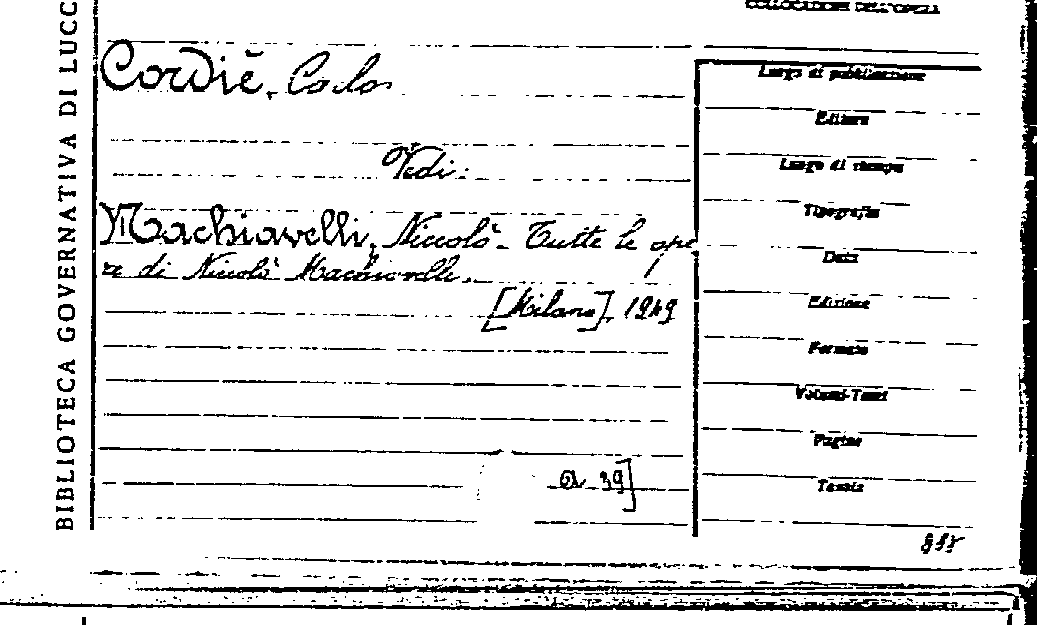 COLLOCAZIONE DELL'OPERA
BIBLIOTECA GOVERNATIVA DI LUCC
Cordiè, Carlo
Vedi:
Machiavelli, Niccolò - Tutte le ope
re di Niccolò Machiavelli.
[Milano], 1949
a 39]
Luogo di pubblicazione
Editore
Luogo di stampa
Tipografia
Data
Edizione
Formato
Volumi-Tomi
Pagine
Tavole